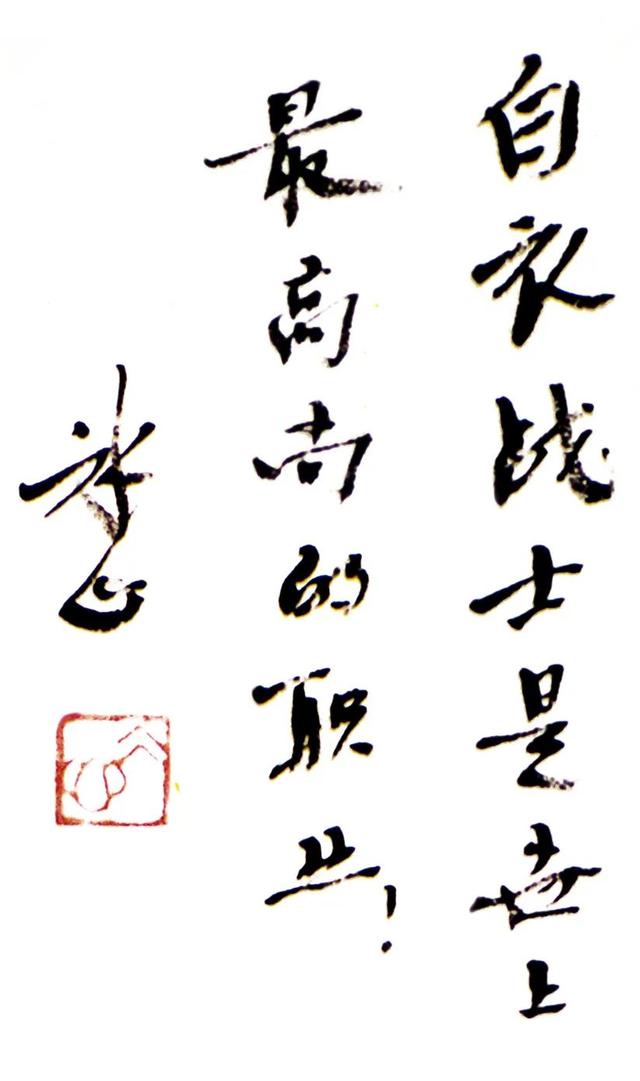 白衣战士是世上
最高尚的职业！